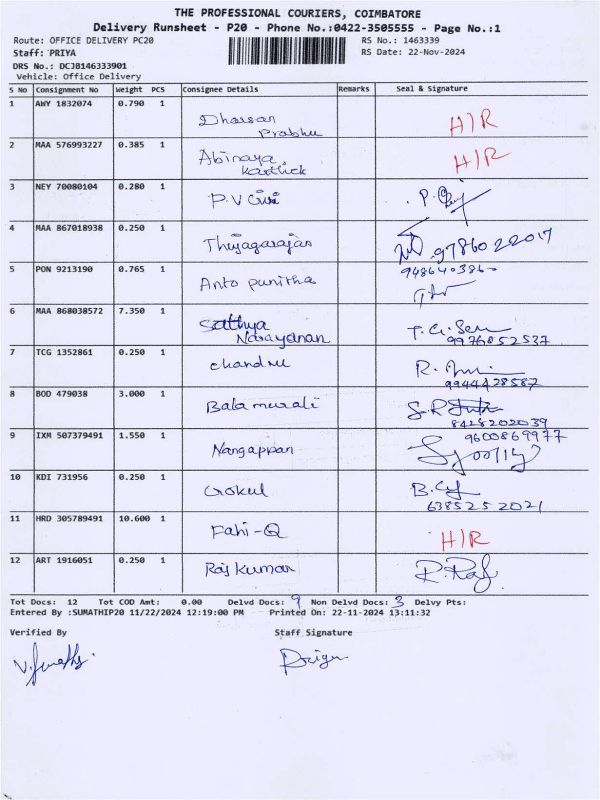 THE PROFESSIONAL COURIERS, COIMBATORE
Delivery Runsheet - P20 - Phone No.:0422-3505555 - Page No.:1
Route: OFFICE DELIVERY PC20 RS No.: 1463339
Staff: PRIYA RS Date: 22-Nov-2024
DRS No.: DCJB146333901
Vehicle: Office Delivery
S No Consignment No Weight PCS Consignee Details Remarks Seal & Signature
1 AWY 1832074 0.790 1 Dharsan
Prabhu H/R
2 MAA 576993227 0.385 1 Abinaya
Karthick H/R
3 NEY 70080104 0.280 1 P.V Giri P.
4 MAA 867018938 0.250 1 Thiyagarajan 9786022017
5 PON 9213190 0.765 1 Anto punitha 948640386
6 MAA 868038572 7.350 1 Sathya
Narayanan T.G.Sen
9976852537
7 TCG 1352861 0.250 1 chandru R.
9944428587
8 BOD 479038 3.000 1 Balamurali S.R
8428202039
9 IXM 507379491 1.550 1 Nangappan 9600869977
10 KDI 731956 0.250 1 Gokul B.
6385252021
11 HRD 305789491 10.600 1 Fahi-Q H/R
12 ART 1916051 0.250 1 Raj Kumar R.Raj
Tot Docs: 12 Tot COD Amt: 0.00 Delvd Docs: 9 Non Delvd Docs: 3 Delvy Pts:
Entered By :SUMATHIP20 11/22/2024 12:19:00 PM Printed On: 22-11-2024 13:11:32
Verified By Staff Signature
V.Sumathi. Priya